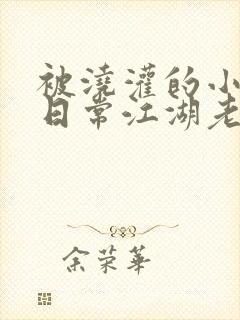 被澆灌的小
日常江湖老
余荣華